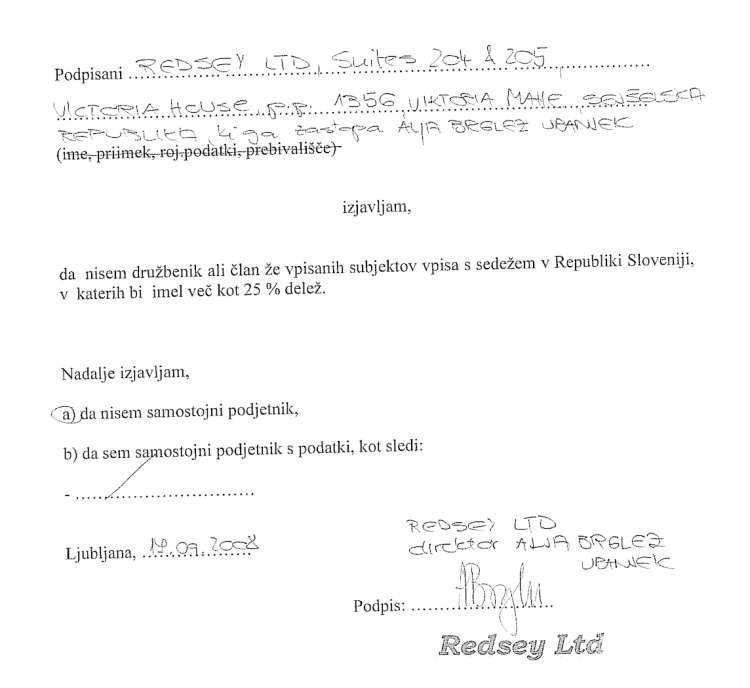 Podpisani REDSEY LTD, Suites 204 & 205
VICTORIA HOUSE, p.p. 1356 VIKTORIA MAHE SEJŠELSKA
REPUBLIKA, ki ga zastopa ALJA BRGLEZ URANJEK
(ime, priimek, roj.podatki, prebivališče)
izjavljam,
da nisem družbenik ali član že vpisanih subjektov vpisa s sedežem v Republiki Sloveniji,
v katerih bi imel več kot 25 % delež.
Nadalje izjavljam,
a) da nisem samostojni podjetnik,
b) da sem samostojni podjetnik s podatki, kot sledi:
- ................................
Ljubljana, 09.2008
REDSEY LTD
direktor ALJA BRGLEZ
URANJEK
Podpis:
Redsey Ltd